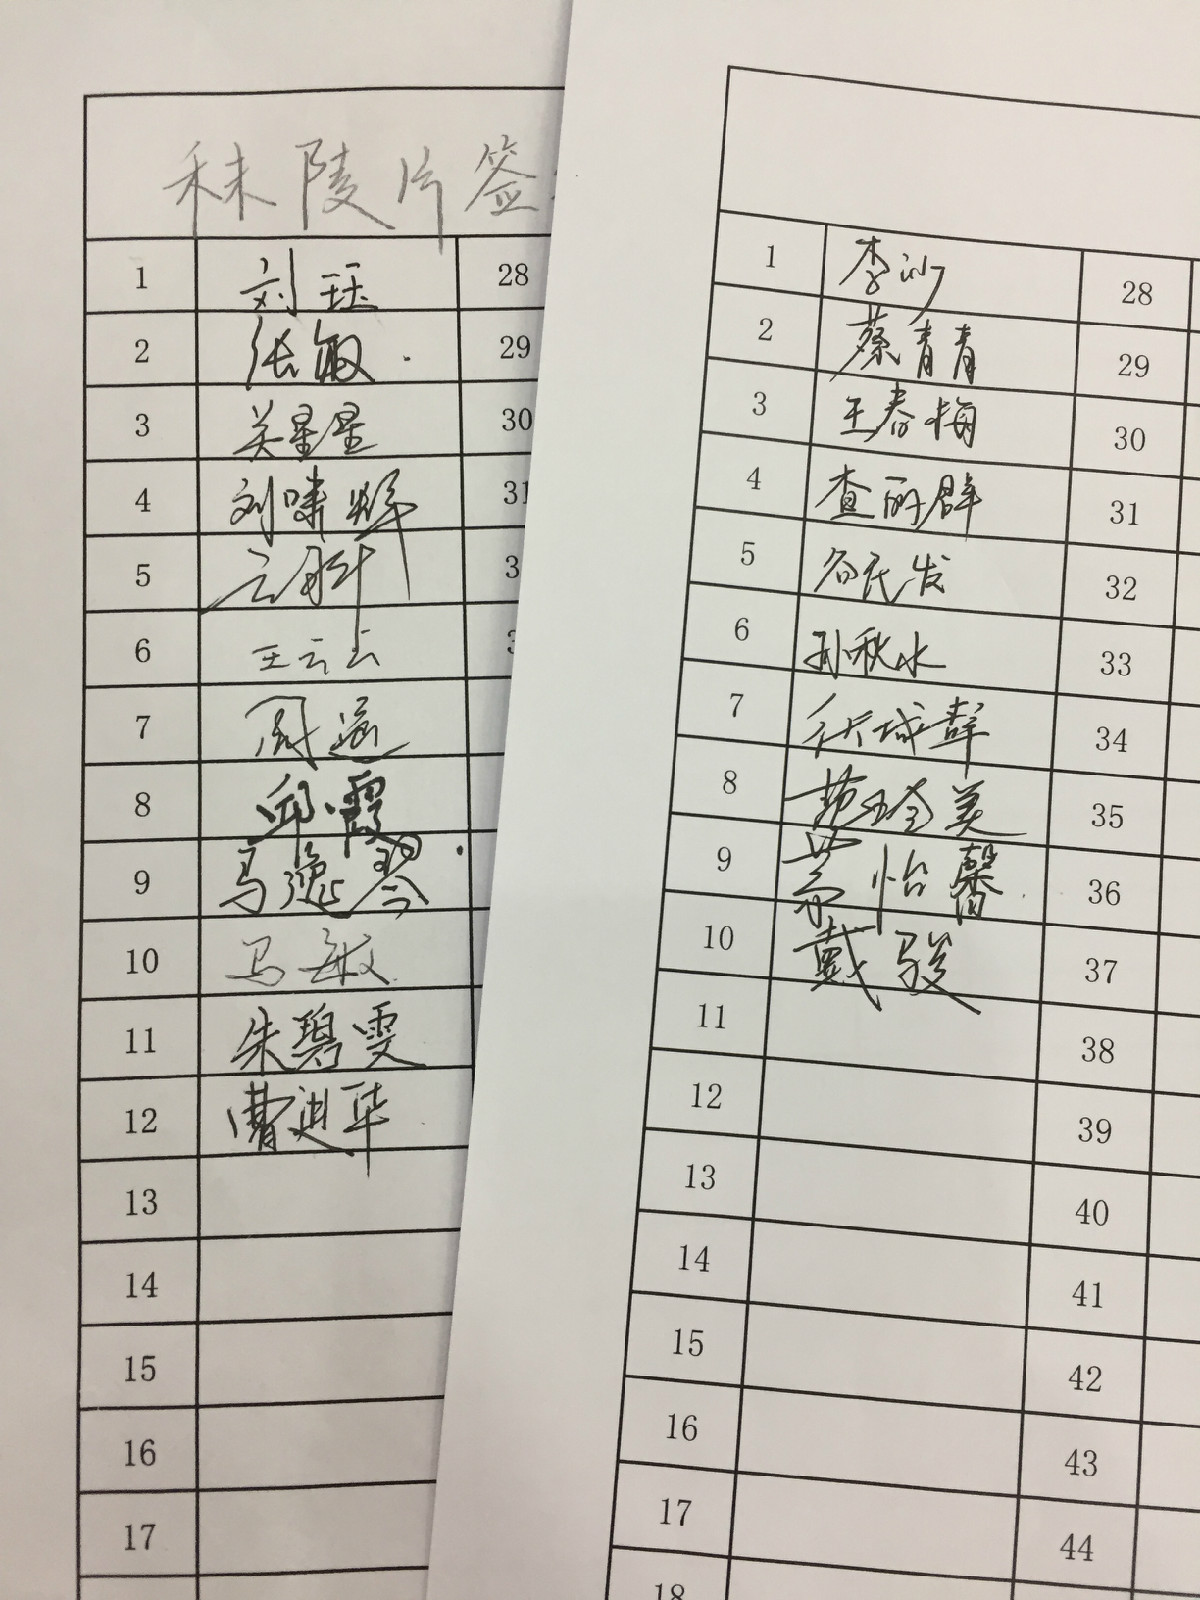 秣陵片签
1 刘珏 28
2 张敏 29
3 关星星 30
4 刘啸辉 31
5 云胜 3
6 王云云 3
7 周遥
8 邱霞
9 马逸琴
10 马敏
11 朱碧雯
12 曹迎华
13
14
15
16
17
1 李沙 28
2 蔡青青 29
3 王春梅 30
4 查丽群 31
5 谷民发 32
6 孙秋水 33
7 34
8 美 35
9 蒙怡馨 36
10 戴骏 37
11 38
12 39
13 40
14 41
15 42
16 43
17 44
18